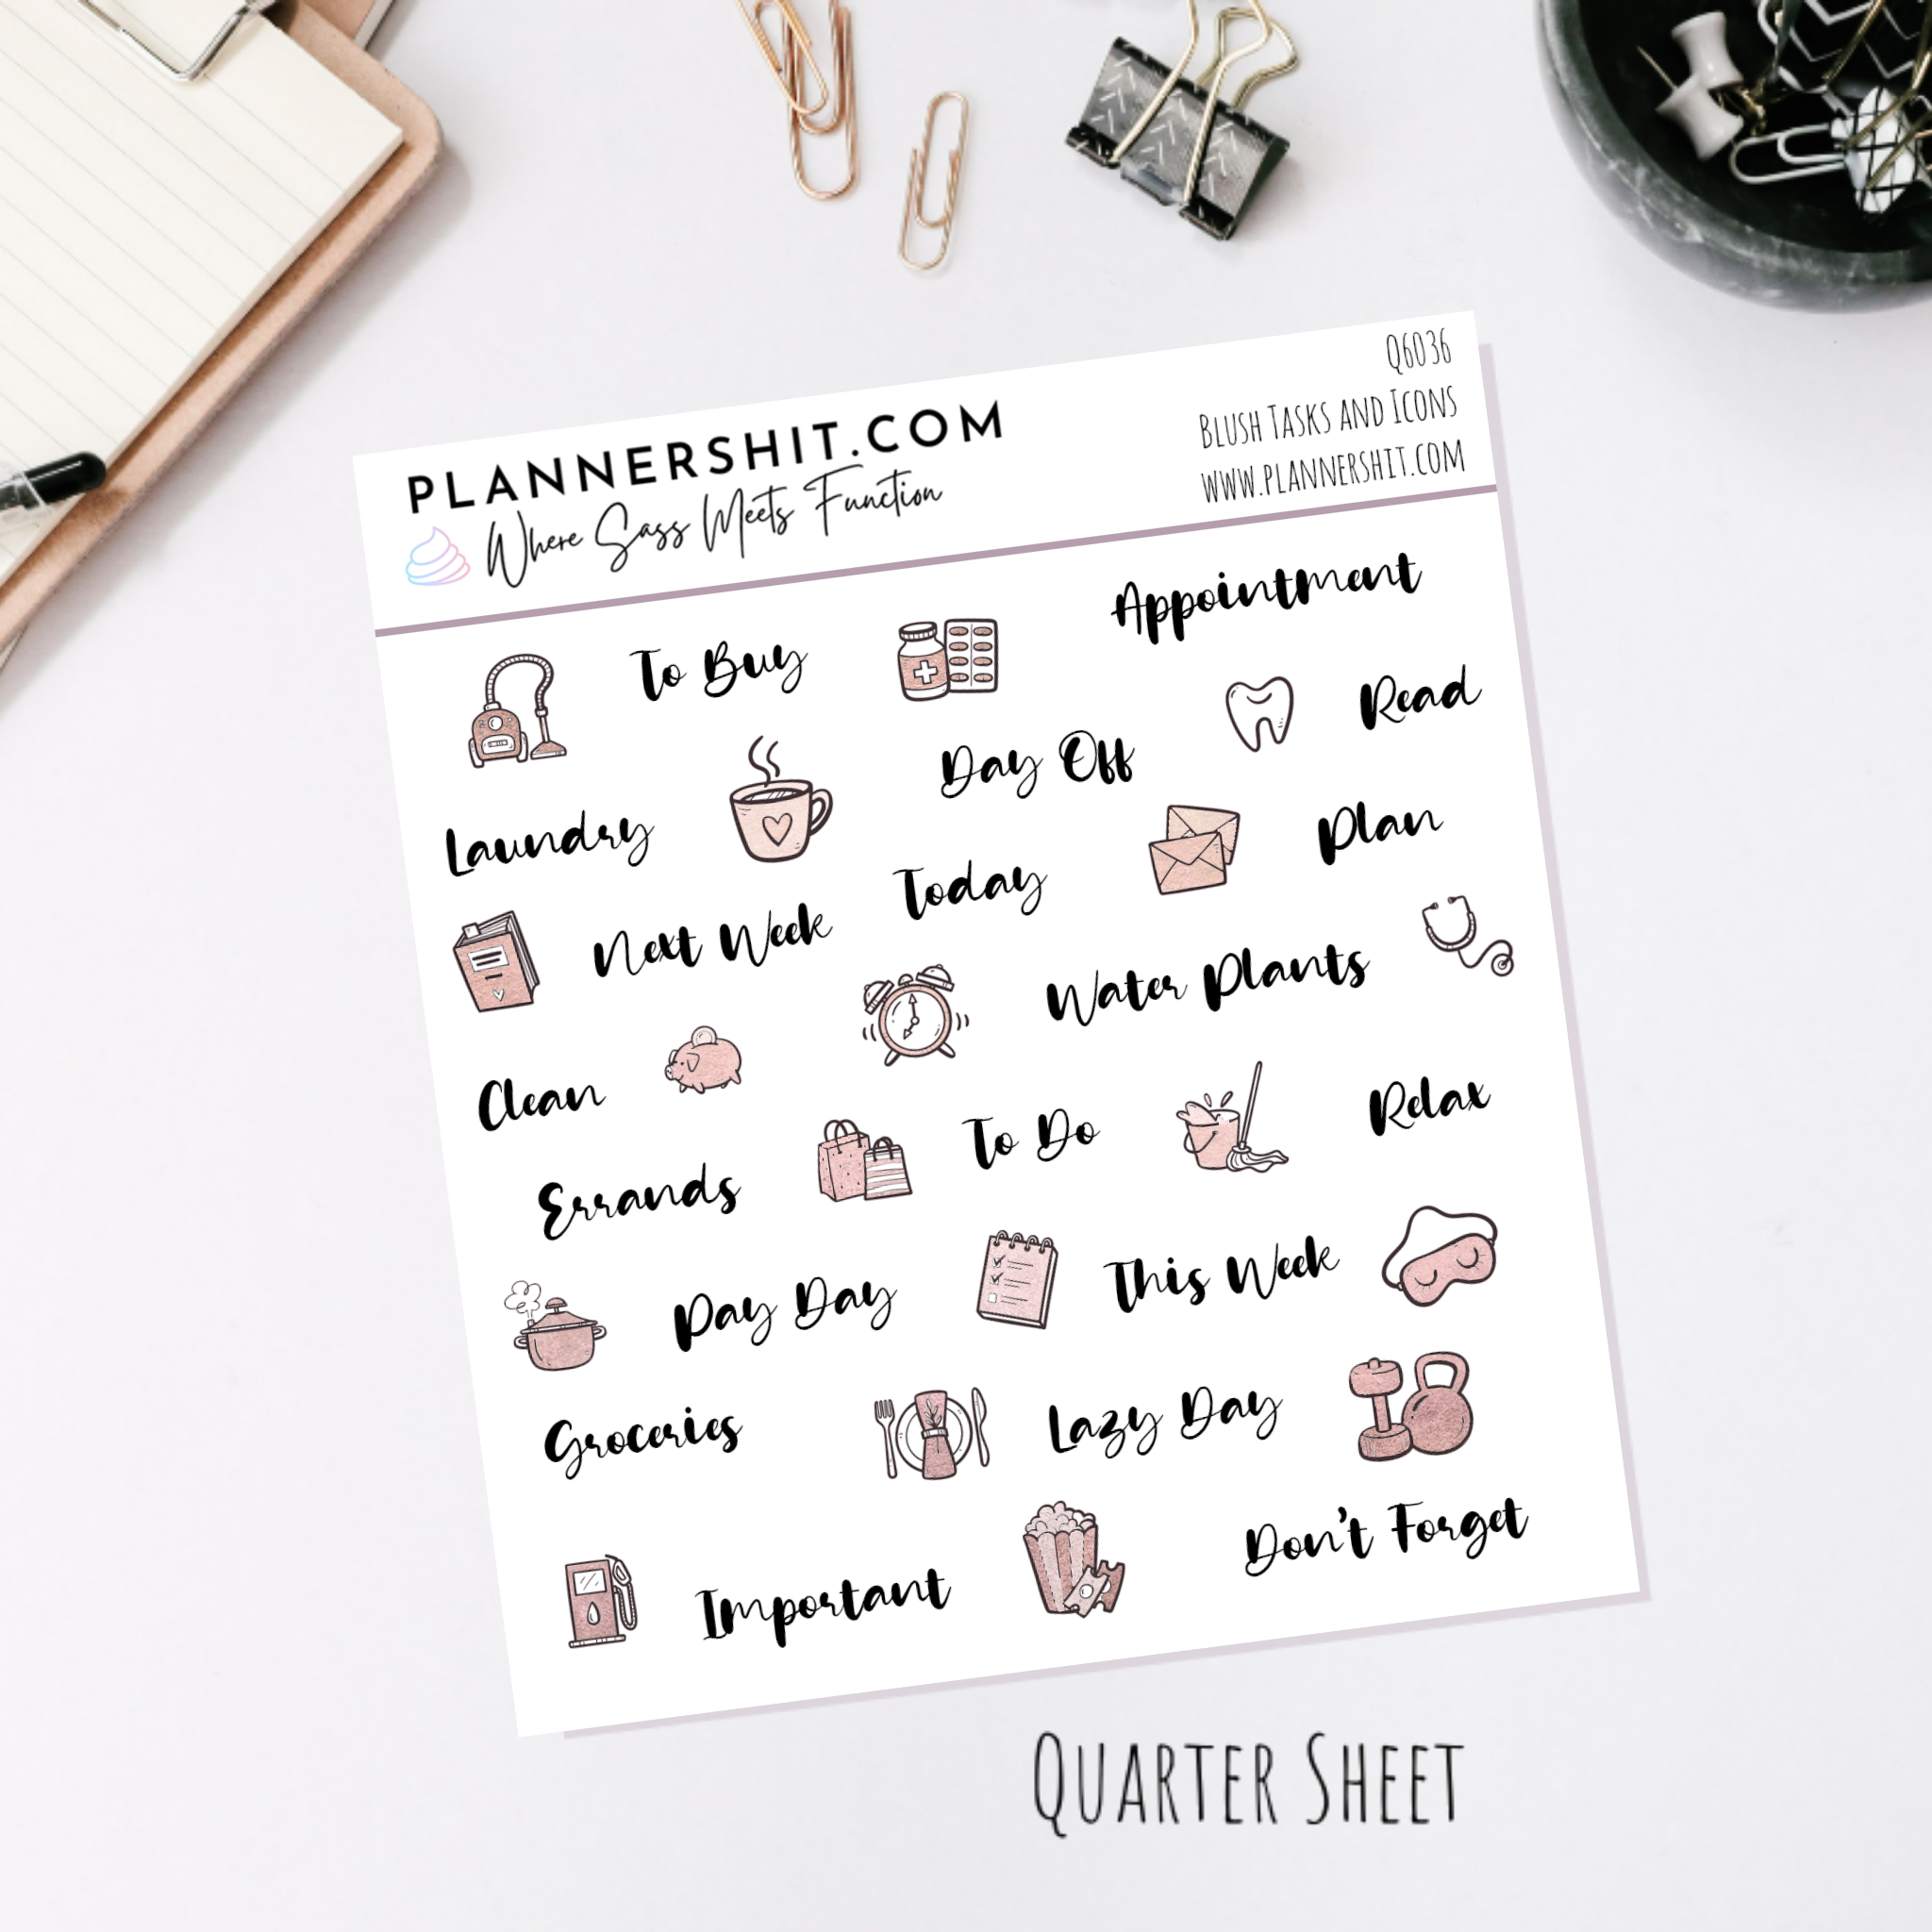 Q6036
PLANNERSHIT.COM
Blush Tasks and Icons
Where Sass Meets Function
www.plannershit.com
Appointment
To Buy
Read
Day Off
Laundry
Plan
Today
Next Week
Water Plants
Clean
Relax
To Do
Errands
This Week
Pay Day
Lazy Day
Groceries
Don't Forget
Important
Quarter Sheet